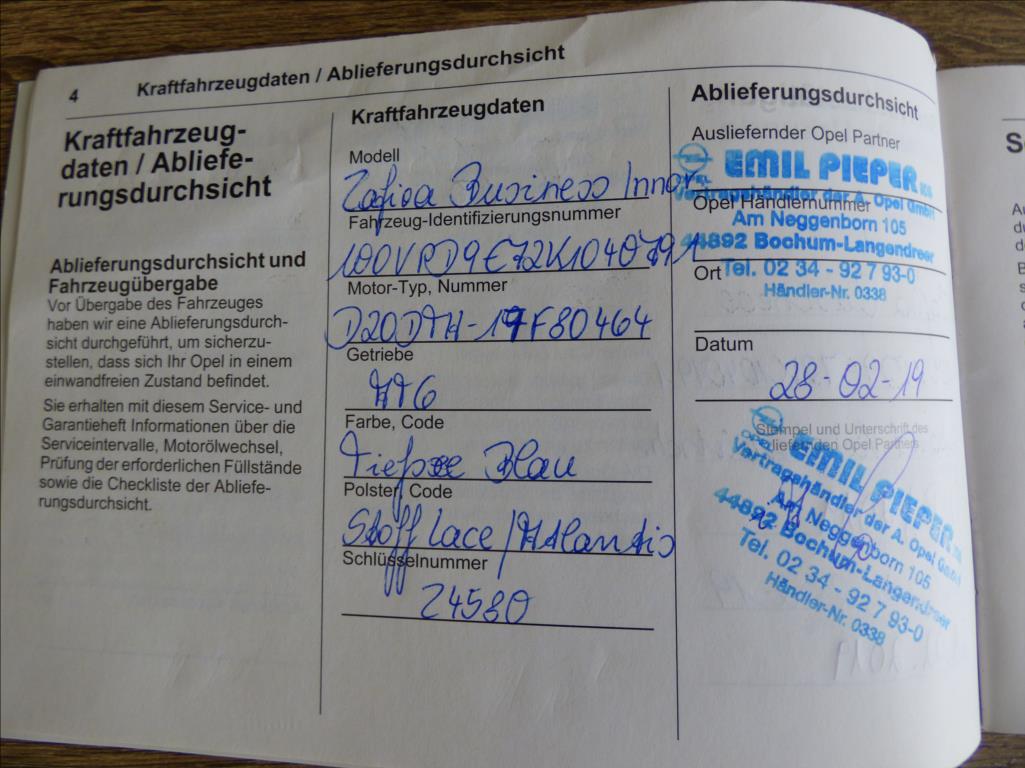 4
Kraftfahrzeugdaten / Ablieferungsdurchsicht
Kraftfahrzeug-
daten / Abliefe-
rungsdurchsicht
Ablieferungsdurchsicht und
Fahrzeugübergabe
Vor Übergabe des Fahrzeuges
haben wir eine Ablieferungsdurch-
sicht durchgeführt, um sicherzu-
stellen, dass sich Ihr Opel in einem
einwandfreien Zustand befindet.
Sie erhalten mit diesem Service- und
Garantieheft Informationen über die
Serviceintervalle, Motorölwechsel,
Prüfung der erforderlichen Füllstände
sowie die Checkliste der Abliefe-
rungsdurchsicht.
Kraftfahrzeugdaten
Modell
Zafira Business Innov
Fahrzeug-Identifizierungsnummer
Motor-Typ, Nummer
Getriebe
Farbe, Code
Tiefsee Blau
Polster, Code
Stoff Lace / Atlantis
Schlüsselnummer
Z4580
Ablieferungsdurchsicht
Ausliefernder Opel Partner
EMIL PIEPER
Vertragshändler der A. Opel GmbH
Opel Händlernummer
Am Neggenborn 105
44892 Bochum-Langendreer
Ort
Tel. 02 34 - 92 7 93-0
Händler-Nr. 0338
Datum
28-02-19
Stempel und Unterschrift des
ausliefernden Opel Partners
EMIL PIEPER
Vertragshändler der A. Opel GmbH
Am Neggenborn 105
44892 Bochum-Langendreer
Tel. 02 34 - 92 7 93-0
Händler-Nr. 0338